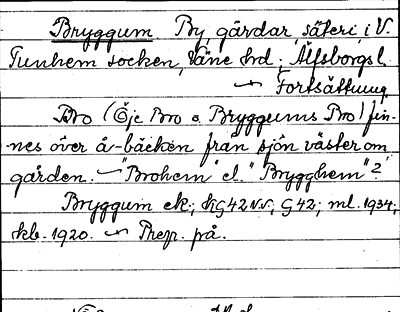 Bryggum. By, gårdar, säteri, i V.
Tunhem socken, Väne hd; Älfsborgs l.
Fortsättning
Bro (Öje Bro o Bryggums Bro) fin-
nes över å-bäcken från sjön väster om
gården. — "Brohem" el. "Brygghem"?
Bryggum ek.; KG42 NV; G42; ml. 1934;
kb. 1920. — Prep. på.